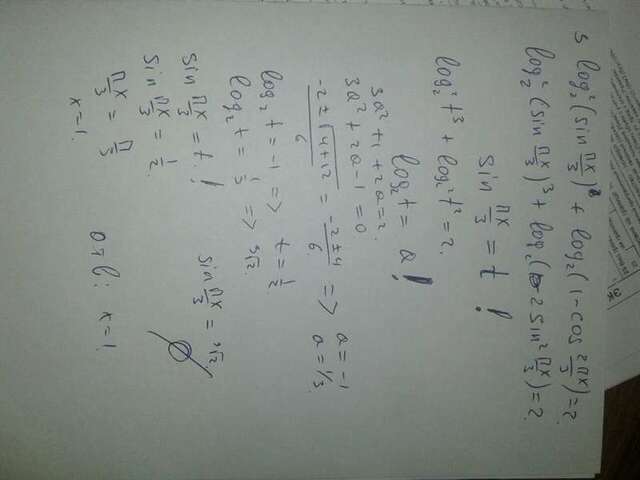 5 log₂²(sin πx/3)³ + log₂(1-cos 2πx/3)=2.
log₂²(sin πx/3)³ + log₂(2 sin² πx/3)=2.
sin πx/3 = t !
log₂² t³ + log₂ t² = 2.
log₂ t = a !
3a² + 1 + 2a = 2.
3a² + 2a - 1 = 0
-2 ± √4+12 / 6 = -2±4 / 6 => a = -1
a = 1/3.
log₂ t = -1 => t = 1/2
log₂ t = 1/3 => ³√2.
sin πx/3 = t !
sin πx/3 = 1/2.
sin πx/3 = ³√2.
∅
πx/3 = π/3
x = 1.
Отв: x = 1